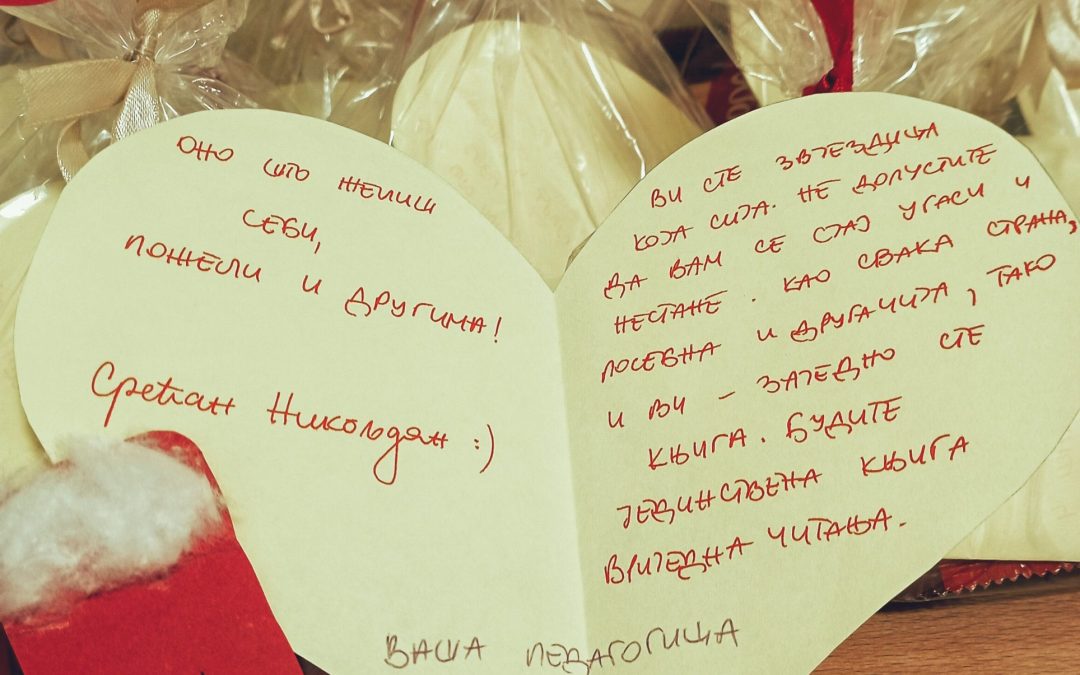 ОНО ШТО ЖЕЛИШ
СЕБИ,
ПОЖЕЛИ И ДРУГИМА!
Срећан Никољдан :)
ВИ СТЕ ЗВЈЕЗДИЦА
КОЈА СИЈА. НЕ ДОПУСТИТЕ
ДА ВАМ СЕ СЈАЈ УГАСИ И
НЕСТАНЕ. КАО СВАКА СТРАНА,
ПОСЕБНА И ДРУГАЧИЈА, ТАКО
И ВИ – ЗАЈЕДНО СТЕ
КЊИГА. БУДИТЕ
ЈЕДИНСТВЕНА КЊИГА
ВРИЈЕДНА ЧИТАЊА.
ВАША ПЕДАГОГИЦА